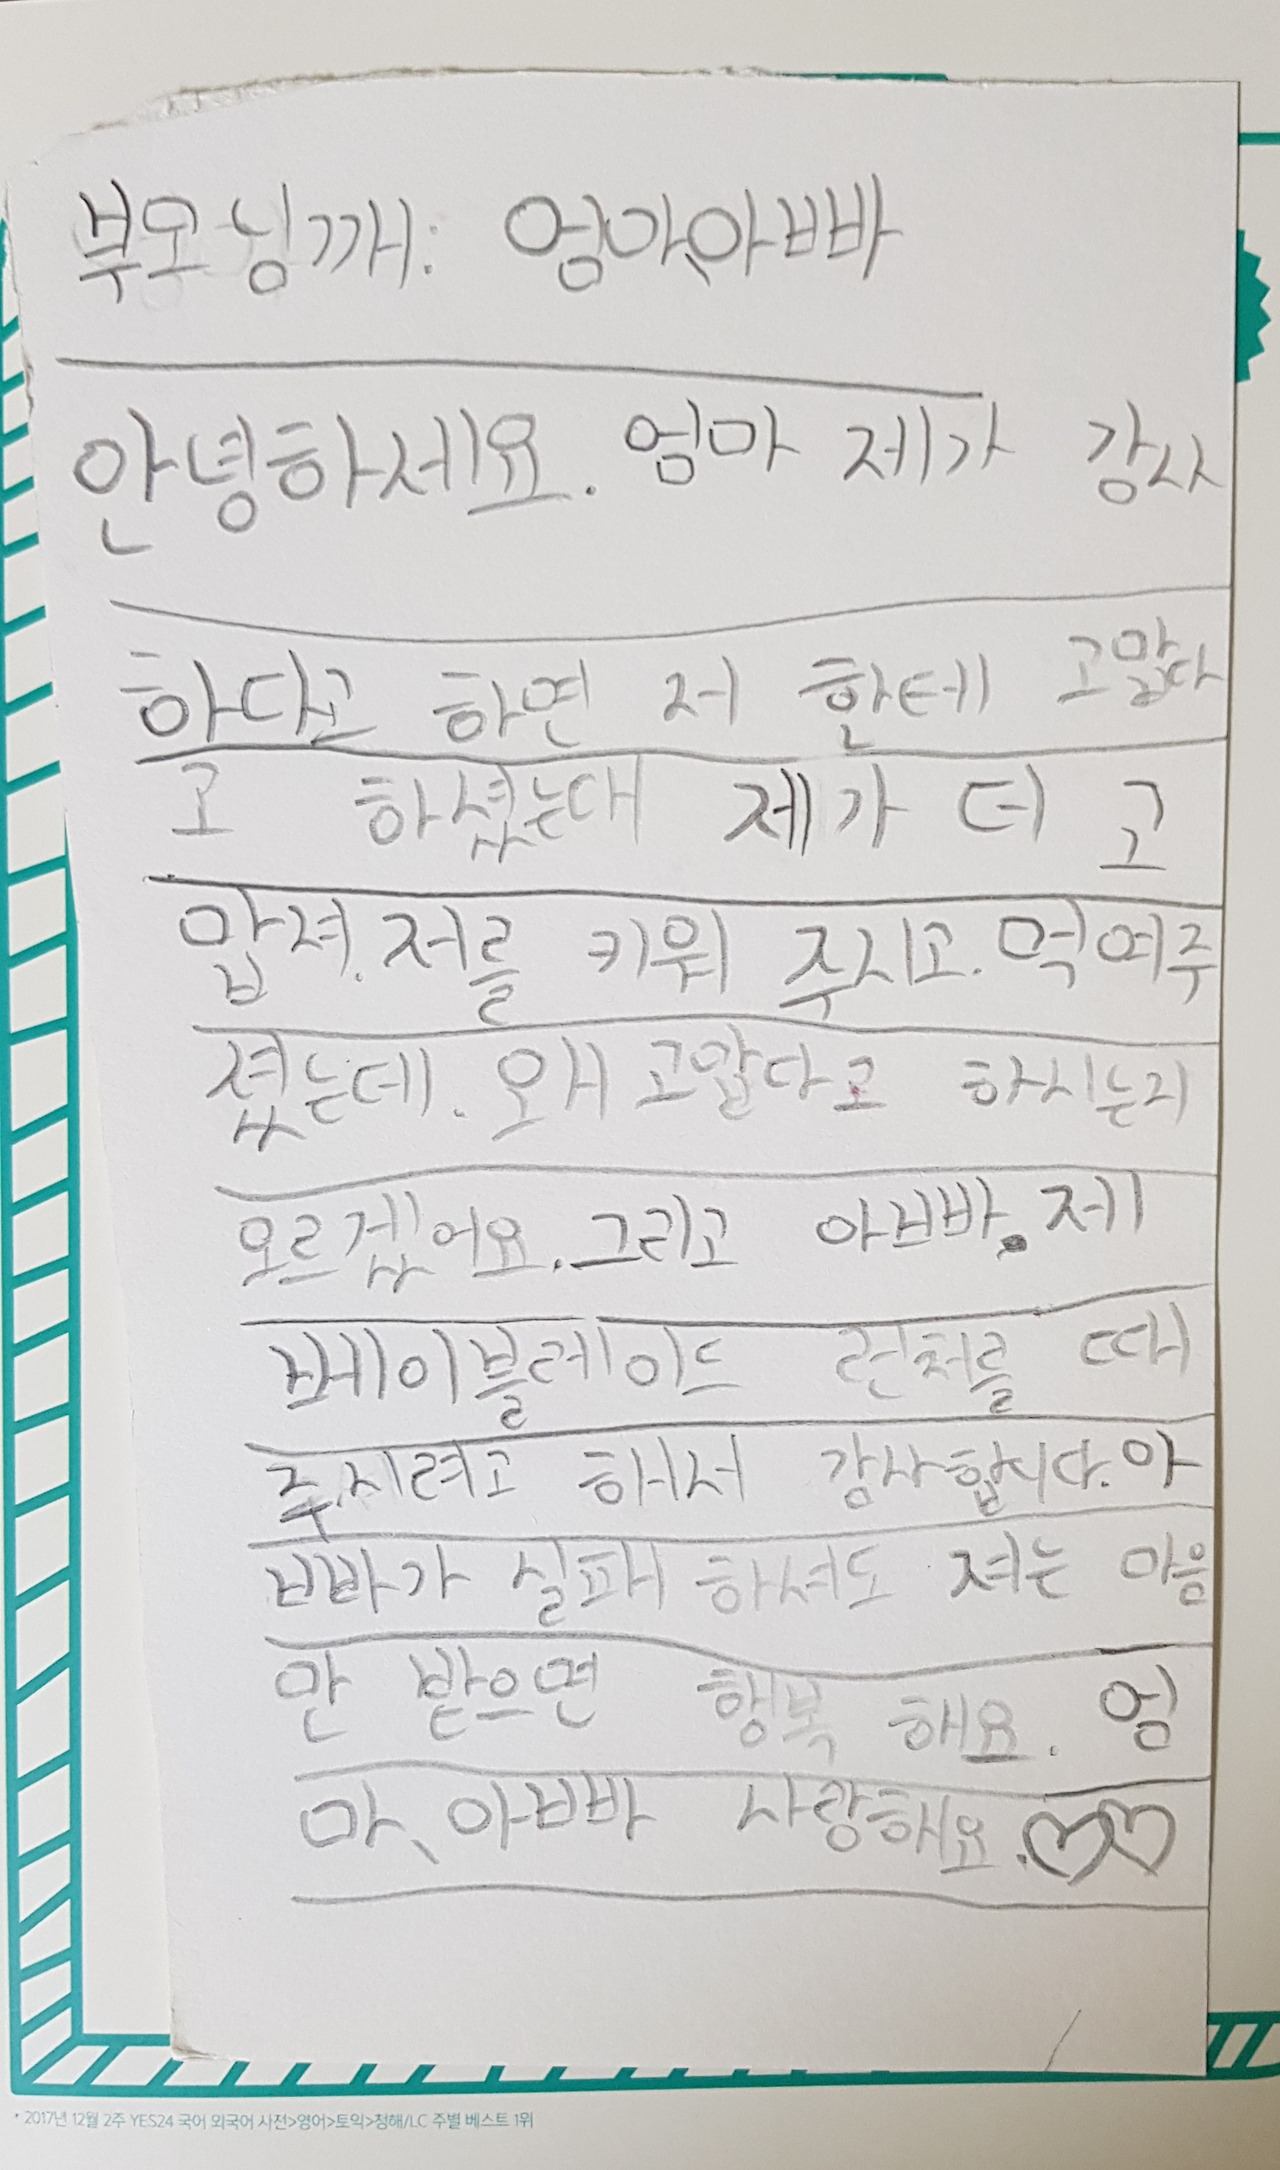 부모님깨: 엄마, 아빠
안녕하세요. 엄마 제가 감사
하다고 하면 저 한테 고맙다
고 하셨는대 제가 더 고
맙져. 저를 키워 주시고. 먹여주
셨는데. 왜 고맙다고 하시는지
모르겠어요. 그리고 아빠. 제
베이블레이드 런처를 때
주시려고 해서 감사합니다. 아
빠가 실패 하셔도 져는 마음
만 받으면 행복 해요. 엄
마, 아빠 사랑해요. ♡♡
* 2017년 12월 2주 YES24 국어 외국어 사전>영어>토익>청해/LC 주별 베스트 1위